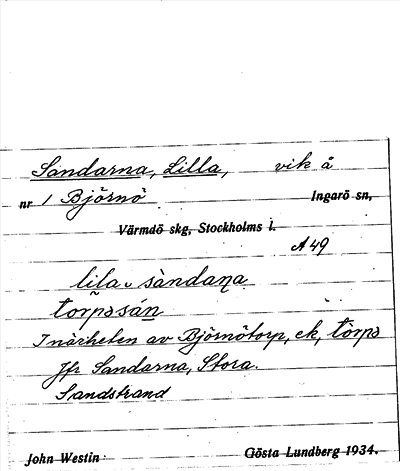 Sandarna, Lilla, vik å
nr 1 Björnö Ingarö sn,
Värmdö skg, Stockholms l.
A 49
lila sàndaṇa
tor̃pəsán
I närheten av Björnötorp, ek, tor̃pə
Jfr Sandarna, Stora.
Sandstrand
John Westin Gösta Lundberg 1934.